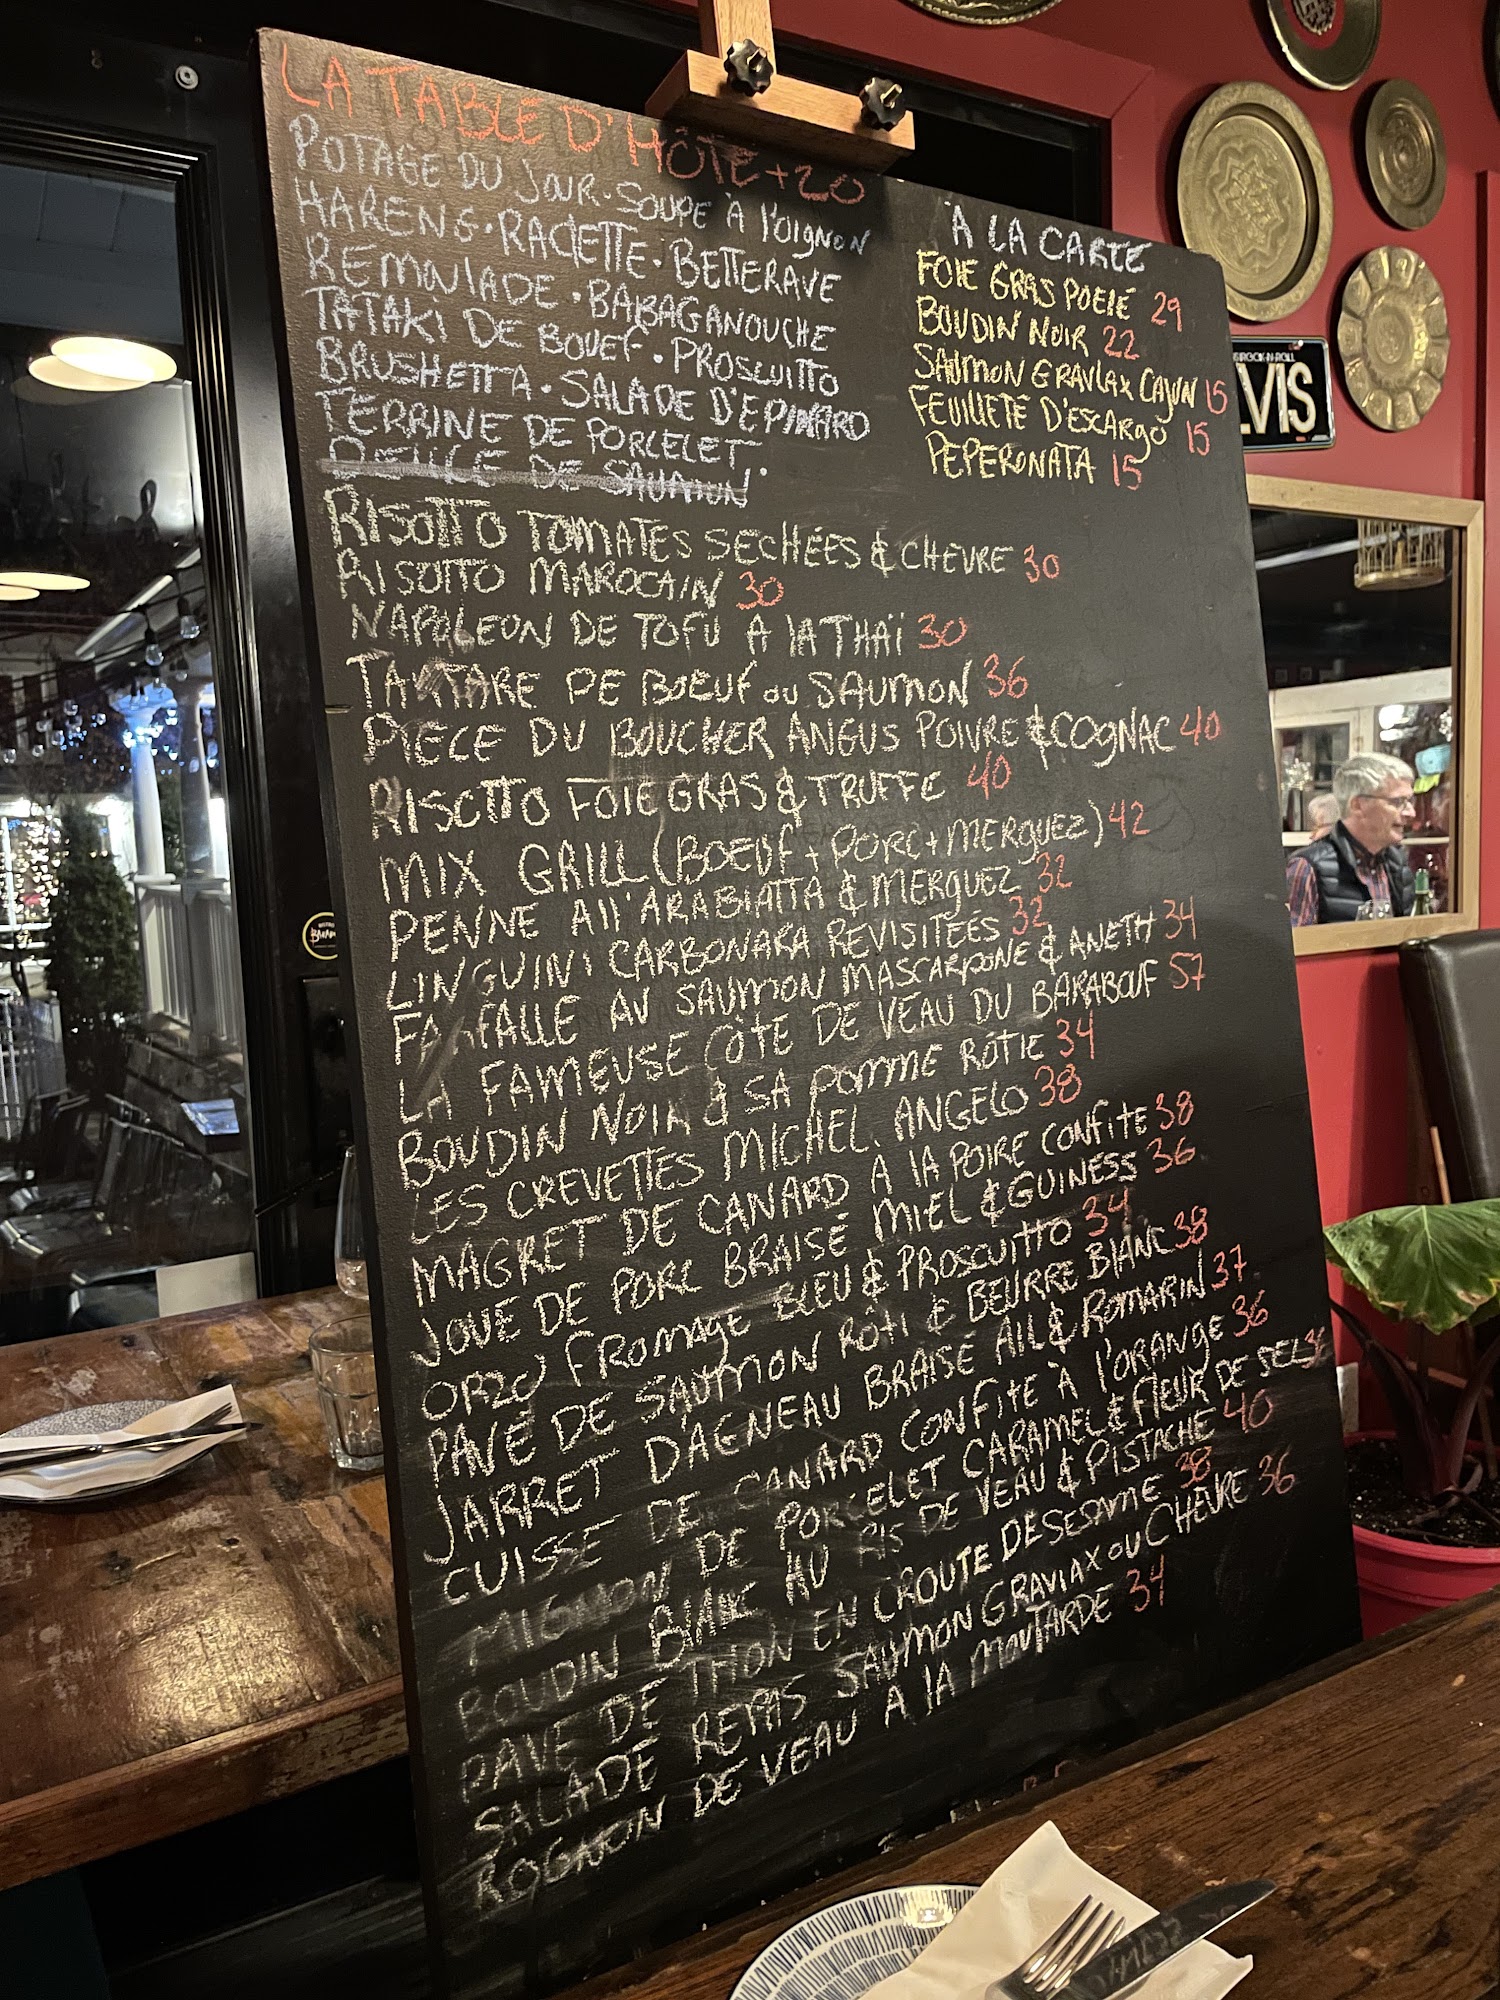 LA TABLE D'HÔTE +20
POTAGE DU JOUR · SOUPE A l'OIGNON
HARENG · RACLETTE · BETTERAVE
REMOULADE · BABAGANOUCHE
TATAKI DE BOUEF · PROSCUITTO
BRUSHETTA · SALADE D'EPINARD
TERRINE DE PORCELET ·
DE SAUMON
À LA CARTE
FOIE GRAS POELÉ 29
BOUDIN NOIR 22
SAUMON GRAVLAX CAJUN 15
FEUILLETÉ D'ESCARGO 15
PEPERONATA 15
RISOTTO TOMATES SECHÉES & CHEVRE 30
RISOTTO MAROCAIN 30
NAPOLEON DE TOFU A lA THAÏ 30
TARTARE DE BOEUF ou SAUMON 36
PIECE DU BOUCHER ANGUS POIVRE & COGNAC 40
RISOTTO FOIE GRAS & TRUFFE 40
MIX GRILL (BOEUF + PORC + MERGUEZ) 42
PENNE All'ARABIATTA & MERGUEZ 32
LINGUINI CARBONARA REVISITEÉS 32
FARFALLE AU SAUMON MASCARPONE & ANETH 34
LA FAMEUSE CÔTE DE VEAU DU BARABOUF 57
BOUDIN NOIR & SA POMME RÔTIE 34
LES CREVETTES MICHEL. ANGELO 38
MAGRET DE CANARD A lA POIRE CONFITE 38
JOUE DE PORC BRAISÉ MIEL & GUINESS 36
ORZO FROMAGE BLEU & PROSCUITTO 34
PAVÉ DE SAUMON RÔTI & BEURRE BlANC 38
JARRET D'AGNEAU BRAISÉ AIL & ROMARIN 37
CUISSE DE CANARD CONFITE À l'ORANGE 36
MIGNON DE PORCELET CARAMEL & FlEUR DE SEL
BOUDIN BlANC AU RIS DE VEAU & PISTACHE 40
PAVE DE THON EN CROUTE DE SESAME 38
SALADE REPAS SAUMON GRAVlAX OU CHÈVRE 36
ROGNON DE VEAU A lA MOUTARDE 34
VIS